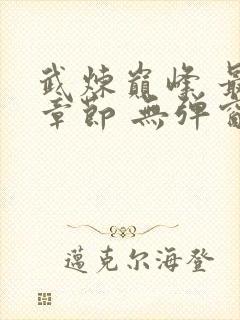 武炼巔峰 最
章節 無弹窗
邁克尔海登